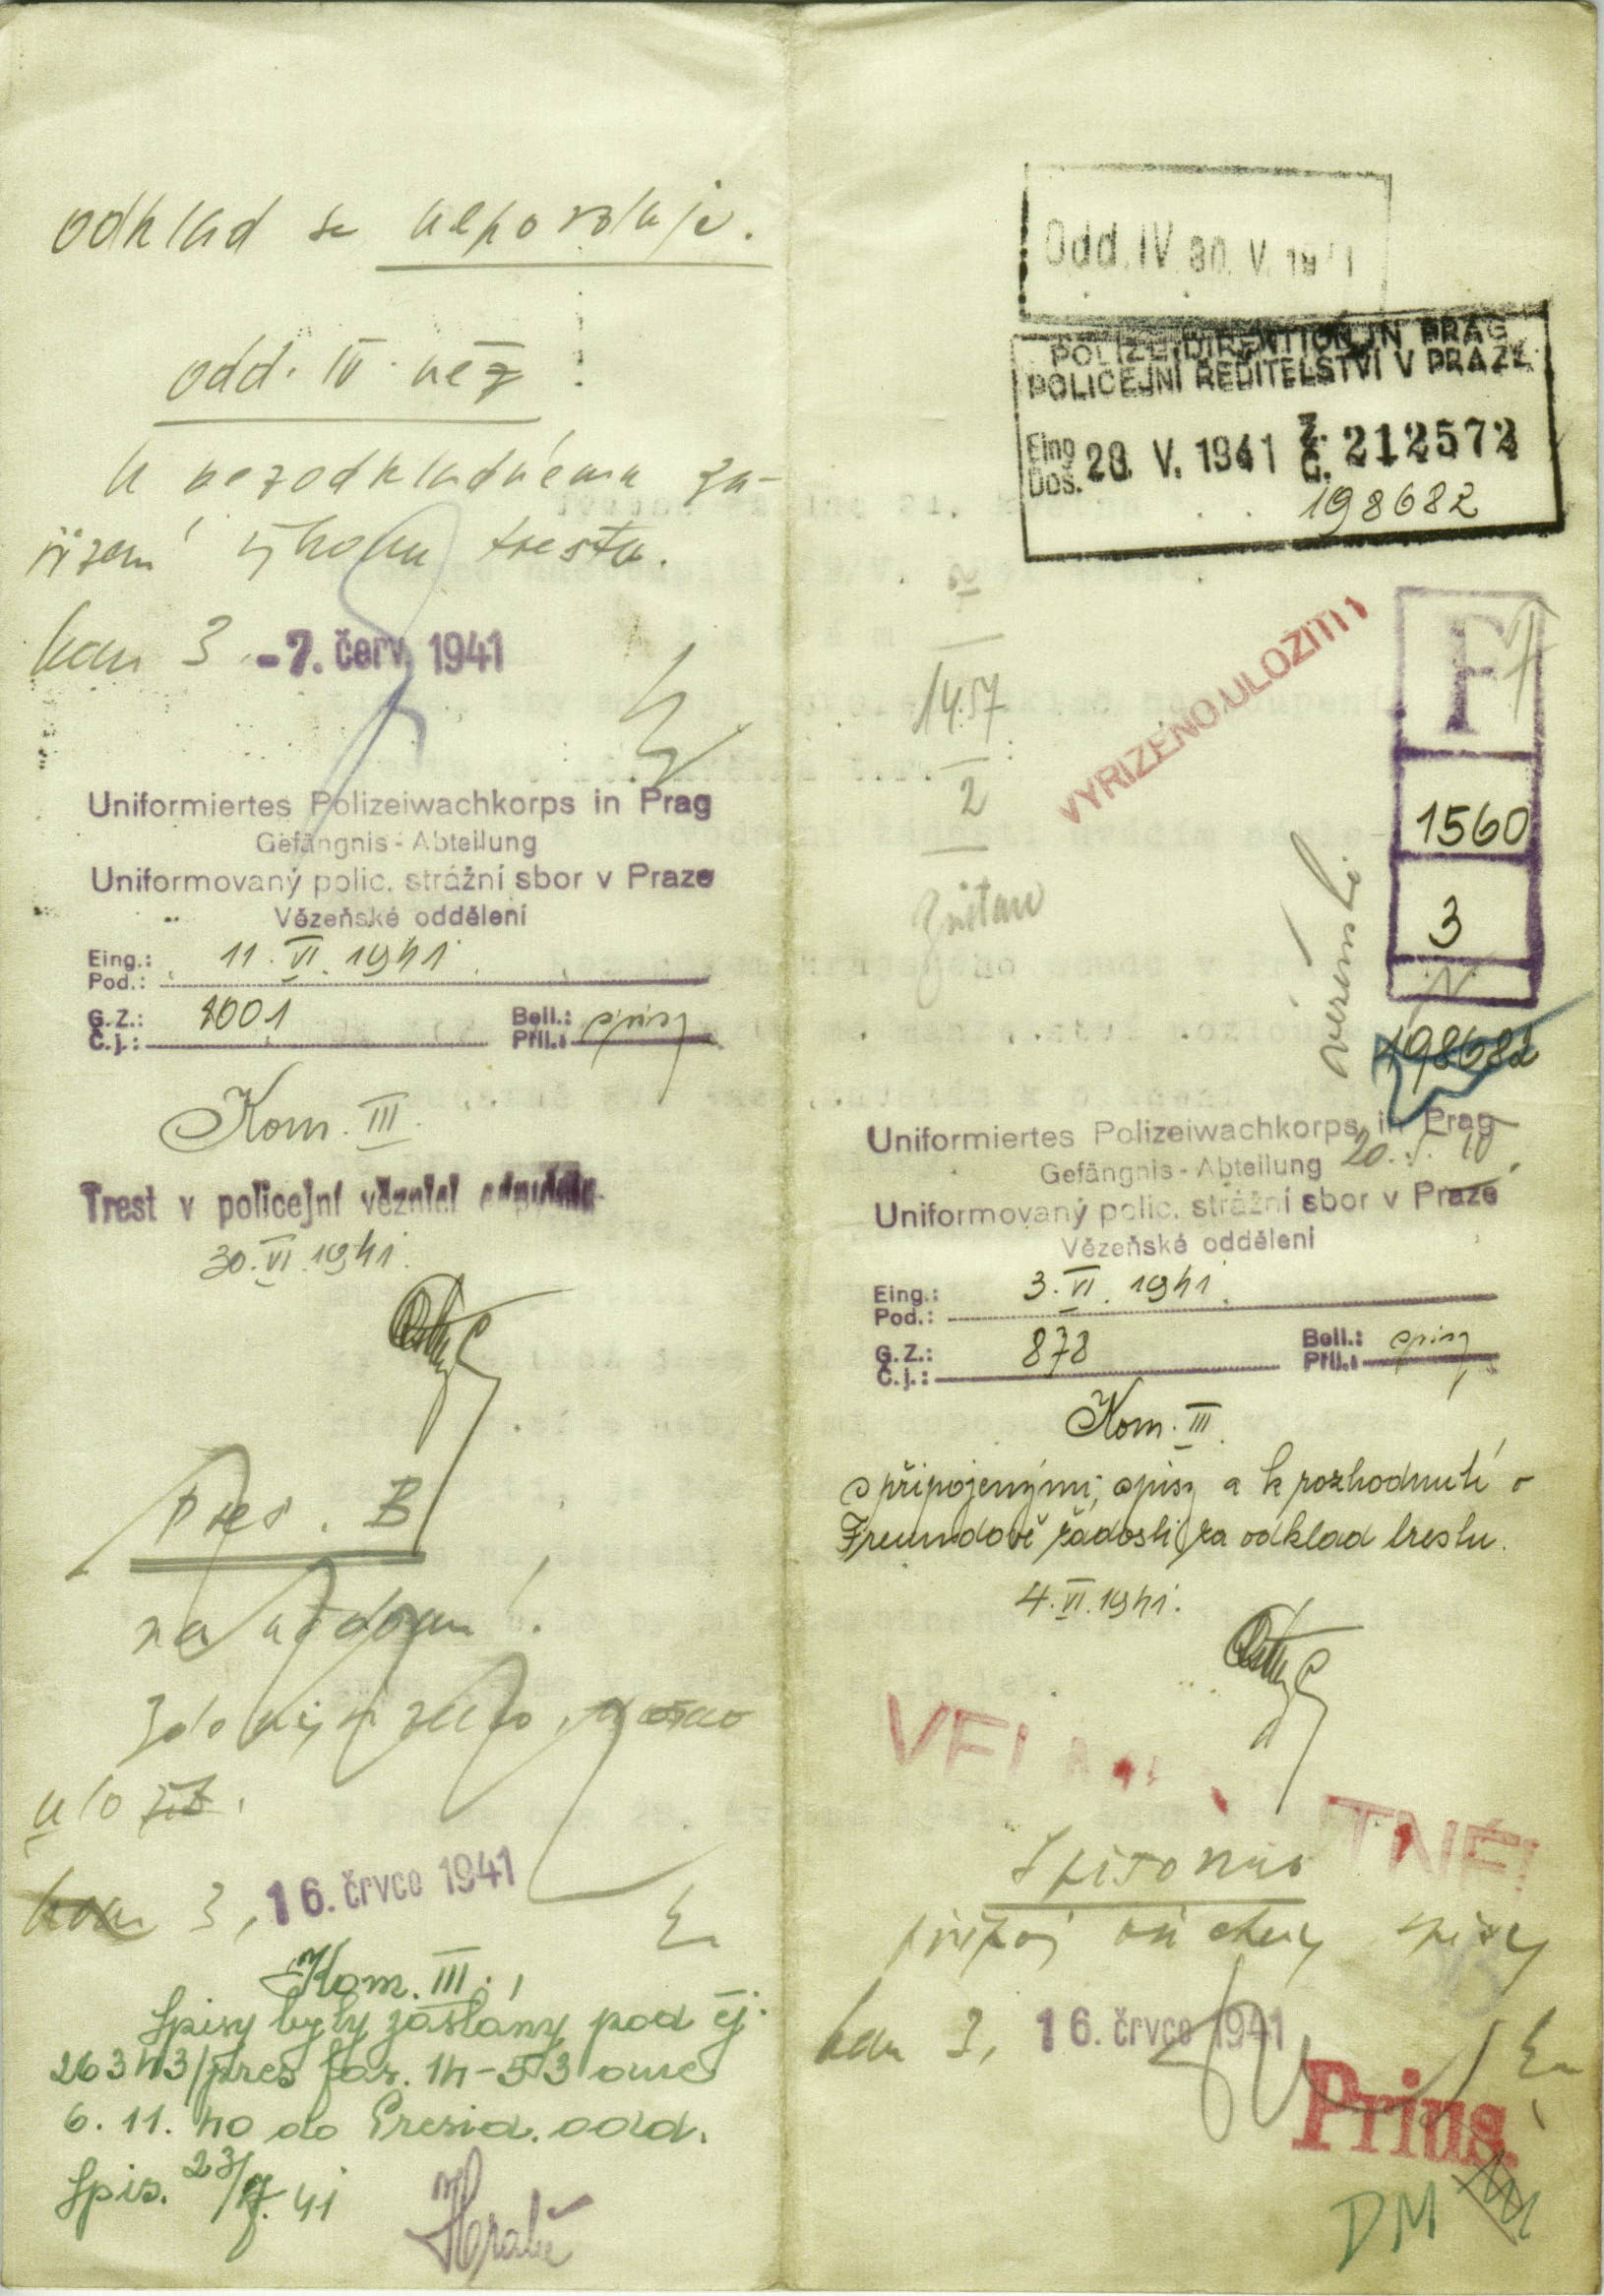 odklad se nepovoluje.
odd. IV věz :
k bezodkladnému za-
řízení výkonu trestu.
kom 3 -7. červ. 1941
Uniformiertes Polizeiwachkorps in Prag
Gefängnis - Abteilung
Uniformovaný polic. strážní sbor v Praze
Vězeňské oddělení
Eing.: 11. VI. 1941
Pod.:
G. Z.: 1001 Beil.: spisy
Č. j.: Příl.:
Kom. III.
Trest v policejní věznici
30. VI. 1941.
Pres. B
na vědomí!
uložit.
kom 3, 16. črvce 1941
Kom. III.,
Spisy byly zaslány pod čj.
26343/pres 14-53 dne
6. 11. 40 do Presid. odd.
Spis. 23/7. 41
Odd. IV 30. V. 1941
POLIZEIDIREKTION IN PRAG
POLICEJNÍ ŘEDITELSTVÍ V PRAZE
Eing. 28. V. 1941 Z. 212572
Doš. Č.
198682
1457
2
VYŘÍZENO ULOŽITI!
F
1560
3
N
vězeňství
198682
Uniformiertes Polizeiwachkorps in Prag
Gefängnis - Abteilung
Uniformovaný polic. strážní sbor v Praze
Vězeňské oddělení
Eing.: 3. VI. 1941.
Pod.:
G. Z.: 878 Beil.: spisy
Č. j.: Příl.:
Kom. III.
s připojenými spisy a k rozhodnutí o
Freundově žádosti za odklad trestu.
4. VI. 1941.
Spisovna
připoj všechny spisy
kom 3, 16. črvce 1941
Prius.
DM